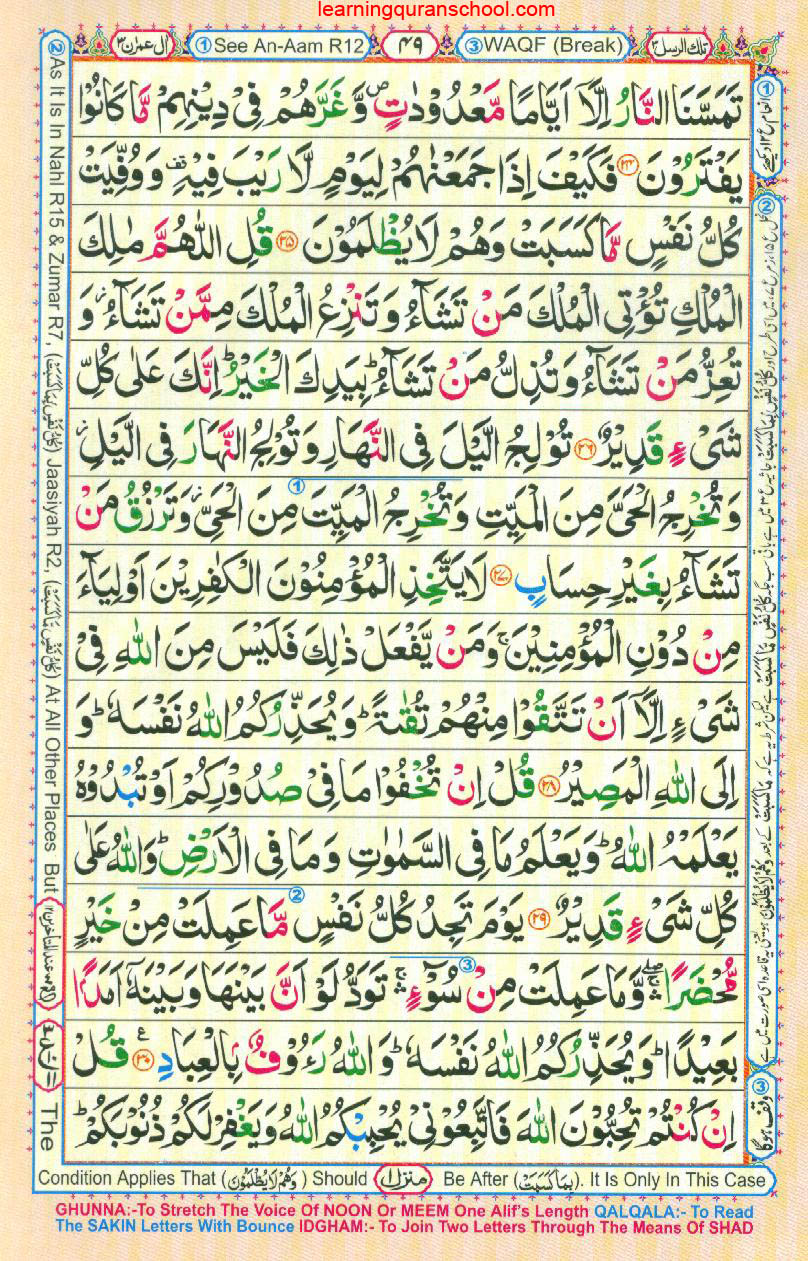 learningquranschool.com
اٰل عمرٰن ٣
① See An-Aam R12
٤٩
③ WAQF (Break)
تلك الرسل ٣
تَمَسَّنَا النَّارُ اِلَّاۤ اَيَّامًا مَّعْدُوْدٰتٍ ۪ وَّغَرَّهُمْ فِيْ دِيْنِهِمْ مَّا كَانُوْا
يَفْتَرُوْنَ ۝٢٤ فَكَيْفَ اِذَا جَمَعْنٰهُمْ لِيَوْمٍ لَّا رَيْبَ فِيْهِ ۫ وَوُفِّيَتْ
كُلُّ نَفْسٍ مَّا كَسَبَتْ وَهُمْ لَا يُظْلَمُوْنَ ۝٢٥ قُلِ اللّٰهُمَّ مٰلِكَ
الْمُلْكِ تُؤْتِي الْمُلْكَ مَنْ تَشَآءُ وَتَنْزِعُ الْمُلْكَ مِمَّنْ تَشَآءُ ۫ وَ
تُعِزُّ مَنْ تَشَآءُ وَتُذِلُّ مَنْ تَشَآءُ ؕ بِيَدِكَ الْخَيْرُ ؕ اِنَّكَ عَلٰى كُلِّ
شَيْءٍ قَدِيْرٌ ۝٢٦ تُوْلِجُ الَّيْلَ فِي النَّهَارِ وَتُوْلِجُ النَّهَارَ فِي الَّيْلِ ۫
وَتُخْرِجُ الْحَيَّ مِنَ الْمَيِّتِ وَتُخْرِجُ الْمَيِّتَ مِنَ الْحَيِّ ۫ وَتَرْزُقُ مَنْ
تَشَآءُ بِغَيْرِ حِسَابٍ ۝٢٧ لَا يَتَّخِذِ الْمُؤْمِنُوْنَ الْكٰفِرِيْنَ اَوْلِيَآءَ
مِنْ دُوْنِ الْمُؤْمِنِيْنَ ۚ وَمَنْ يَّفْعَلْ ذٰلِكَ فَلَيْسَ مِنَ اللّٰهِ فِيْ
شَيْءٍ اِلَّاۤ اَنْ تَتَّقُوْا مِنْهُمْ تُقٰىةً ؕ وَيُحَذِّرُكُمُ اللّٰهُ نَفْسَهٗ ؕ وَ
اِلَى اللّٰهِ الْمَصِيْرُ ۝٢٨ قُلْ اِنْ تُخْفُوْا مَا فِيْ صُدُوْرِكُمْ اَوْ تُبْدُوْهُ
يَعْلَمْهُ اللّٰهُ ؕ وَيَعْلَمُ مَا فِي السَّمٰوٰتِ وَمَا فِي الْاَرْضِ ؕ وَاللّٰهُ عَلٰى
كُلِّ شَيْءٍ قَدِيْرٌ ۝٢٩ يَوْمَ تَجِدُ كُلُّ نَفْسٍ مَّا عَمِلَتْ مِنْ خَيْرٍ
مُّحْضَرًا ۛۖۚ وَّمَا عَمِلَتْ مِنْ سُوْٓءٍ ۛۚ تَوَدُّ لَوْ اَنَّ بَيْنَهَا وَبَيْنَهٗۤ اَمَدًۢا
بَعِيْدًا ؕ وَيُحَذِّرُكُمُ اللّٰهُ نَفْسَهٗ ؕ وَاللّٰهُ رَءُوْفٌۢ بِالْعِبَادِ ۝٣٠ قُلْ
اِنْ كُنْتُمْ تُحِبُّوْنَ اللّٰهَ فَاتَّبِعُوْنِيْ يُحْبِبْكُمُ اللّٰهُ وَيَغْفِرْ لَكُمْ ذُنُوْبَكُمْ ؕ
② As It Is In Nahl R15 & Zumar R7, Jaasiyah R2, (كُلُّ نَفْسٍ مَّا كَسَبَتْ) At All Other Places But The
③ وقف ہوگا
Condition Applies That (وَهُمْ لَا يُظْلَمُوْنَ) Should منزل ١ Be After (بِمَا كَسَبَتْ). It Is Only In This Case
GHUNNA:-To Stretch The Voice Of NOON Or MEEM One Alif's Length QALQALA:- To Read
The SAKIN Letters With Bounce IDGHAM:- To Join Two Letters Through The Means Of SHAD